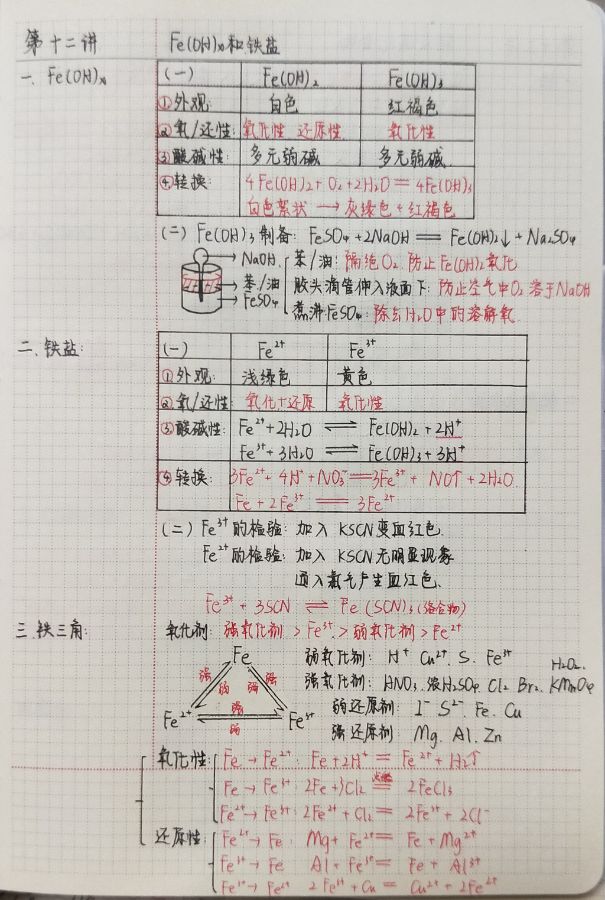 第十二讲 Fe(OH)ₓ和铁盐
一、Fe(OH)ₓ (一) Fe(OH)₂ Fe(OH)₃
①外观: 白色 红褐色
②氧/还性: 氧化性 还原性 氧化性
③酸碱性: 多元弱碱 多元弱碱
④转换: 4Fe(OH)₂+O₂+2H₂O══4Fe(OH)₃
白色絮状 → 灰绿色→红褐色
(二) Fe(OH)₃制备: FeSO₄+2NaOH══Fe(OH)₂↓+Na₂SO₄
NaOH 苯/油: 隔绝O₂ 防止Fe(OH)₂氧化
苯/油 胶头滴管伸入液面下: 防止空气中O₂溶于NaOH
FeSO₄ 煮沸FeSO₄: 除去H₂O中的溶解氧.
二、铁盐: (一) Fe²⁺ Fe³⁺
①外观: 浅绿色 黄色
②氧/还性: 氧化+还原 氧化性
③酸碱性: Fe²⁺+2H₂O ⇌ Fe(OH)₂+2H⁺
Fe³⁺+3H₂O ⇌ Fe(OH)₃+3H⁺
④转换: 3Fe²⁺+4H⁺+NO₃⁻══3Fe³⁺+NO↑+2H₂O.
Fe+2Fe³⁺══3Fe²⁺
(二) Fe³⁺的检验: 加入 KSCN变血红色.
Fe²⁺的检验: 加入 KSCN无明显现象
通入氯气产生血红色.
Fe³⁺+3SCN ⇌ Fe(SCN)₃(络合物)
三.铁三角: 氧化剂: 强氧化剂>Fe³⁺>弱氧化剂>Fe²⁺
Fe 弱氧化剂: H⁺ Cu²⁺. S. Fe³⁺
强 弱 强 强 强氧化剂: HNO₃.浓H₂SO₄. Cl₂ Br₂. KMnO₄ H₂O₂.
强 弱还原剂: I⁻ S²⁻. Fe. Cu
Fe²⁺ 弱 Fe³⁺ 强还原剂 Mg. Al. Zn
氧化性: Fe→Fe²⁺: Fe+2H⁺=Fe²⁺+H₂↑
Fe→Fe³⁺: 2Fe+3Cl₂ 点燃══ 2FeCl₃
Fe²⁺→Fe³⁺: 2Fe²⁺+Cl₂=2Fe³⁺+2Cl⁻
还原性: Fe²⁺→Fe: Mg+Fe²⁺=Fe+Mg²⁺
Fe³⁺→Fe Al+Fe³⁺=Fe+Al³⁺
Fe³⁺→Fe²⁺ 2Fe³⁺+Cu=Cu²⁺+2Fe²⁺